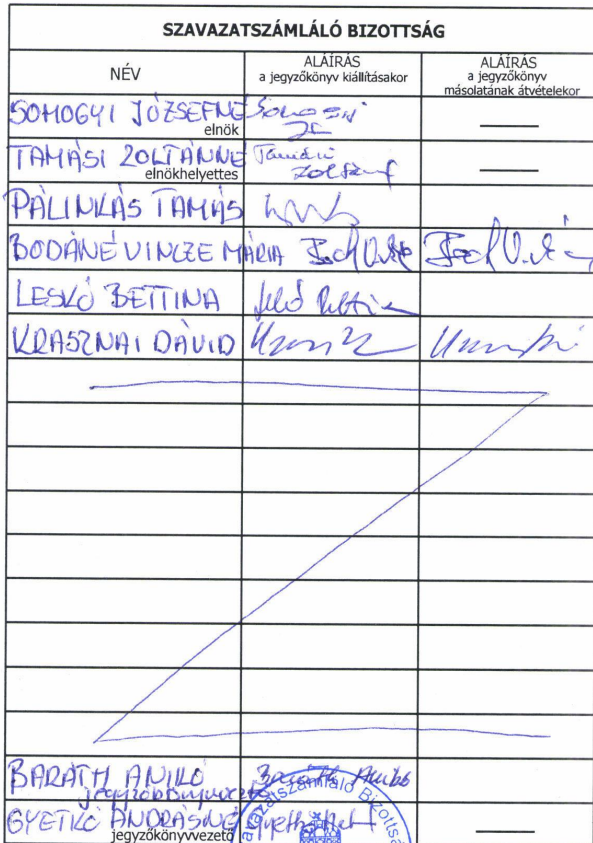 SZAVAZATSZÁMLÁLÓ BIZOTTSÁG
NÉV
ALÁÍRÁS
a jegyzőkönyv kiállításakor
ALÁÍRÁS
a jegyzőkönyv
másolatának átvételekor
SOMOGYI JÓZSEFNÉ
elnök
TAMÁSI ZOLTÁNNÉ Tamási
elnökhelyettes
PÁLINKÁS TAMÁS
BODÁNÉ VINCZE MÁRIA
LESKÓ BETTINA
KRASZNAI DÁVID
BARÁTH ANIKÓ
jegyzőkönyvvezető
GYETKÓ ANDRÁSNÉ
jegyzőkönyvvezető
Szavazatszámláló Bizottság